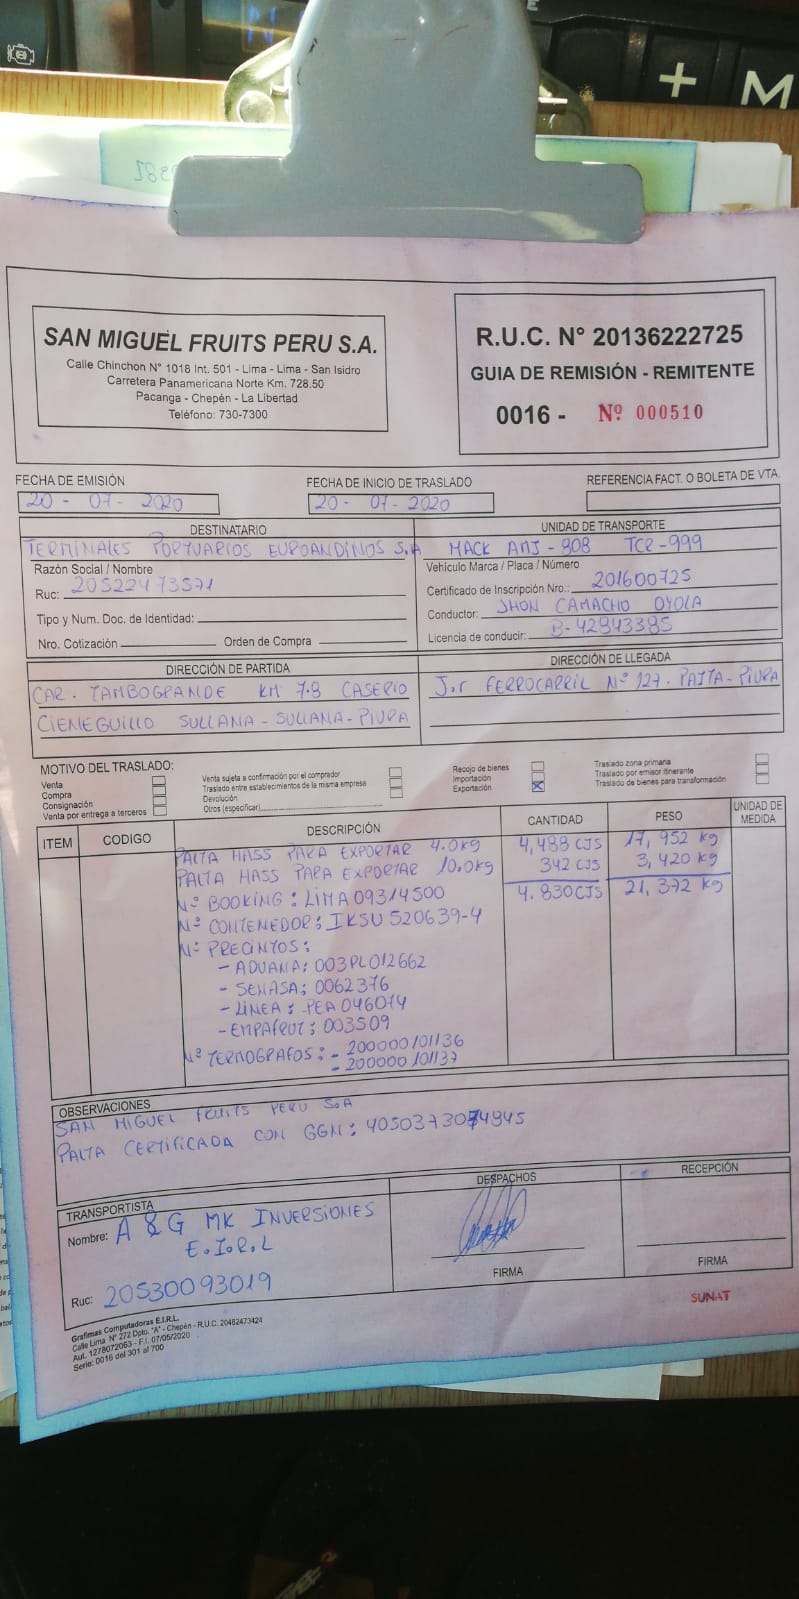 + M
SAN MIGUEL FRUITS PERU S.A.
Calle Chinchon N° 1018 Int. 501 - Lima - Lima - San Isidro
Carretera Panamericana Norte Km. 728.50
Pacanga - Chepén - La Libertad
Teléfono: 730-7300
R.U.C. N° 20136222725
GUIA DE REMISIÓN - REMITENTE
0016 - Nº 000510
FECHA DE EMISIÓN
20 - 07 - 2020
FECHA DE INICIO DE TRASLADO
20 - 07 - 2020
REFERENCIA FACT. O BOLETA DE VTA.
DESTINATARIO
TERMINALES PORTUARIOS EUROANDINOS S.A
Razón Social / Nombre
Ruc: 20522473571
Tipo y Num. Doc. de Identidad:
Nro. Cotización Orden de Compra
UNIDAD DE TRANSPORTE
MACK AMJ - 808 TCR-999
Vehículo Marca / Placa / Número
Certificado de Inscripción Nro.: 201600725
Conductor: JHON CAMACHO OYOLA
Licencia de conducir: B-42843385
DIRECCIÓN DE PARTIDA
CAR. TAMBOGRANDE KM 7.8 CASERIO
CIENEGUILLO SULLANA - SULLANA - PIURA
DIRECCIÓN DE LLEGADA
J.r FERROCARRIL Nº 127. PAITA - PIURA
MOTIVO DEL TRASLADO:
Venta
Compra
Consignación
Venta por entrega a terceros
Venta sujeta a confirmación por el comprador
Traslado entre establecimientos de la misma empresa
Devolución
Otros (especificar)
Recojo de bienes
Importación
Exportación X
Traslado zona primaria
Traslado por emisor itinerante
Traslado de bienes para transformación
ITEM CODIGO DESCRIPCIÓN CANTIDAD PESO UNIDAD DE MEDIDA
PALTA HASS PARA EXPORTAR 4.0kg 4,488 CJS 17,952 kg
PALTA HASS PARA EXPORTAR 10.0kg 342 CJS 3,420 kg
Nº BOOKING: LIMA09314500 4.830 CJS 21,372 kg
Nº CONTENEDOR: IKSU 520639-4
Nº PRECINTOS:
- ADUANA: 003PL012662
- SENASA: 0062376
- LÍNEA: PEA046074
- EMPAFRUT: 003509
Nº TERMOGRAFOS: - 200000101136
- 200000101137
OBSERVACIONES
SAN MIGUEL FRUITS PERU S.A
PALTA CERTIFICADA CON GGN: 4050373074845
TRANSPORTISTA
Nombre: A & G MK INVERSIONES
E.I.R.L
Ruc: 20530093019
DESPACHOS
FIRMA
RECEPCIÓN
FIRMA
SUNAT
Grafimas Computadoras E.I.R.L.
Calle Lima N° 272 Dpto. "A" - Chepén - R.U.C. 20482473424
Aut. 1278072063 - F.I. 07/05/2020
Serie: 0016 del 301 al 700